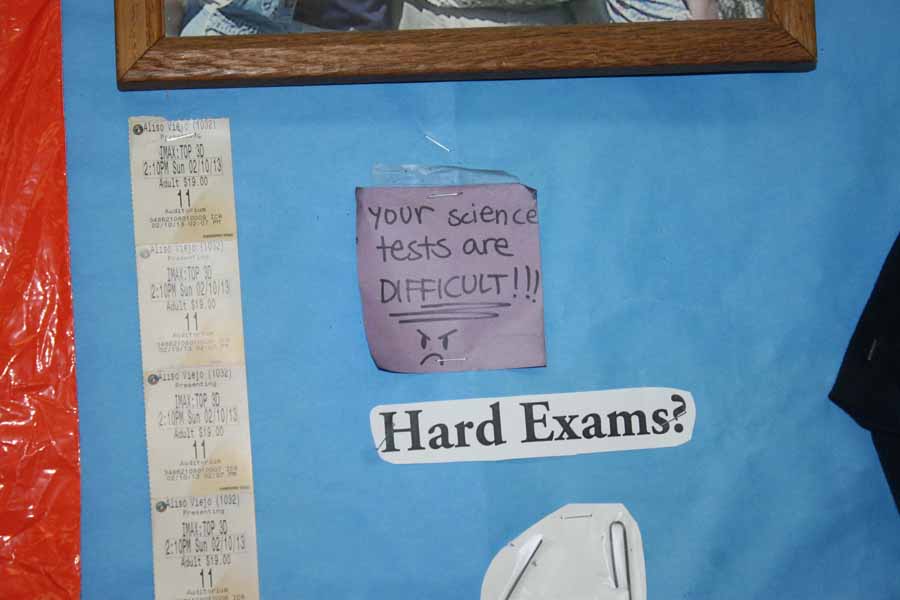 Aliso Viejo (1032)
Presenting
IMAX:TOP 3D
2:10PM Sun 02/10/13
Adult $19.00
11
Auditorium
02/10/13 02:07 PM
Aliso Viejo (1032)
Presenting
IMAX:TOP 3D
2:10PM Sun 02/10/13
Adult $19.00
11
Auditorium
02/10/13 02:07 PM
Aliso Viejo (1032)
Presenting
IMAX:TOP 3D
2:10PM Sun 02/10/13
Adult $19.00
11
Auditorium
02/10/13 02:07 PM
Aliso Viejo (1032)
Presenting
IMAX:TOP 3D
2:10PM Sun 02/10/13
Adult $19.00
11
Auditorium
your science
tests are
DIFFICULT!!!
Hard Exams?